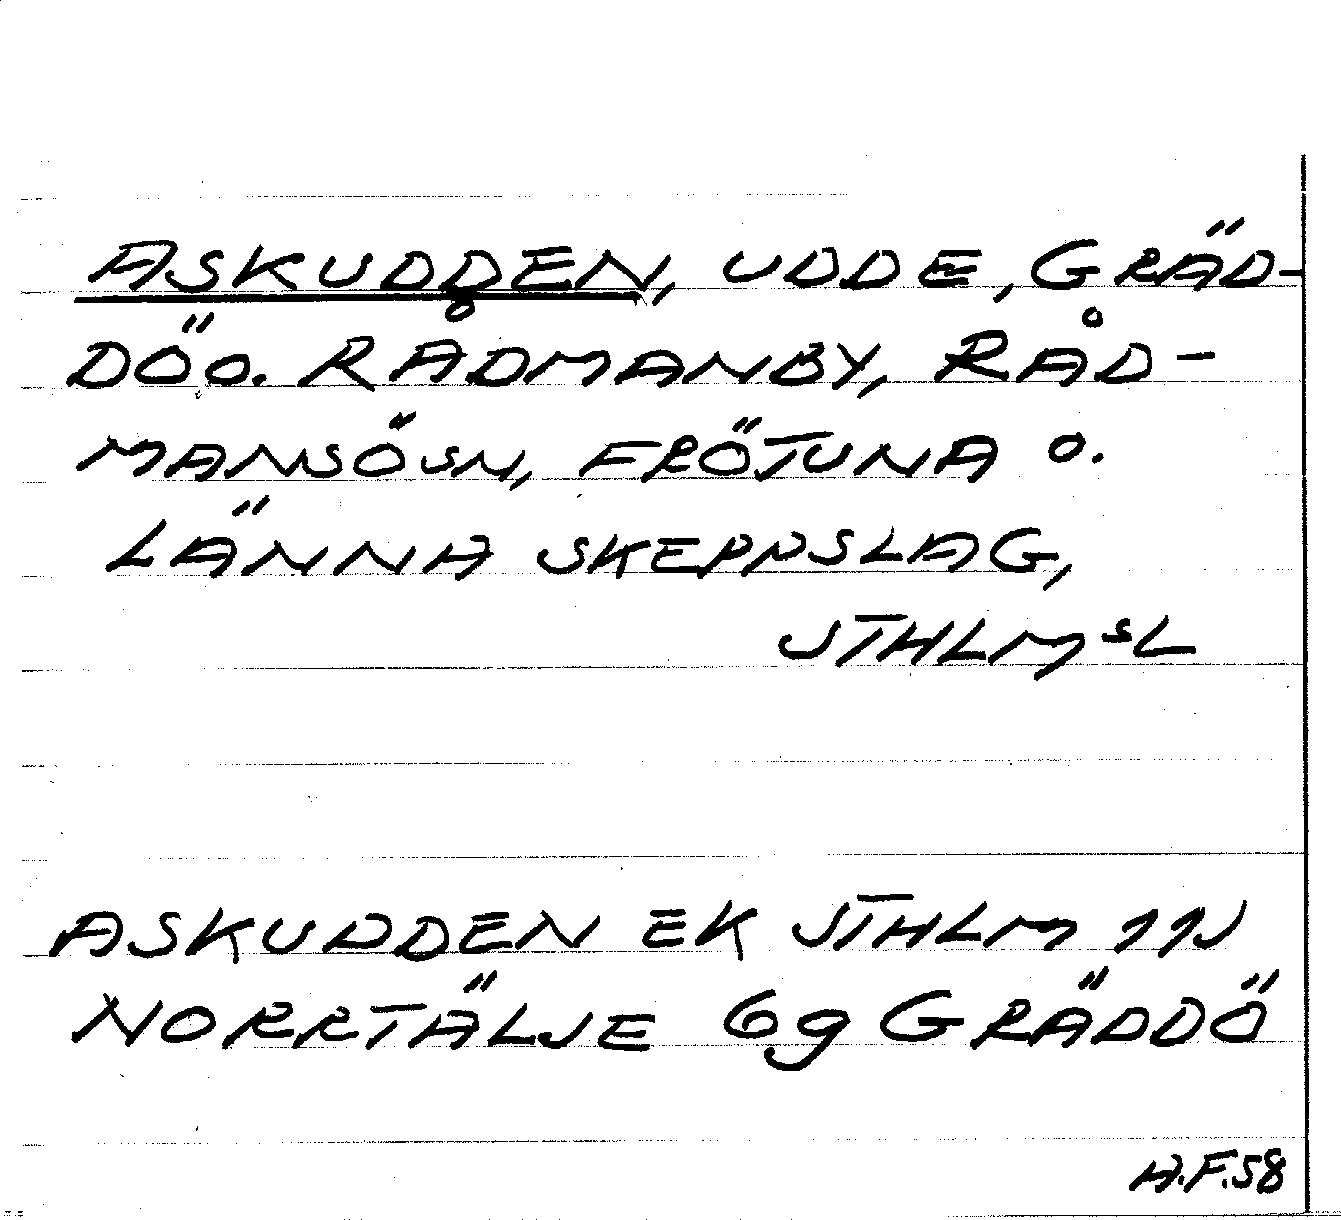 ASKUDDEN, UDDE, GRÄD-
DÖ O. RÅDMANBY, RÅD-
MANSÖ SN, FRÖTUNA O.
LÄNNA SKEPPSLAG,
STHLMSL
ASKUDDEN EK STHLM 11J
NORRTÄLJE 6g GRÄDDÖ
H.F.58